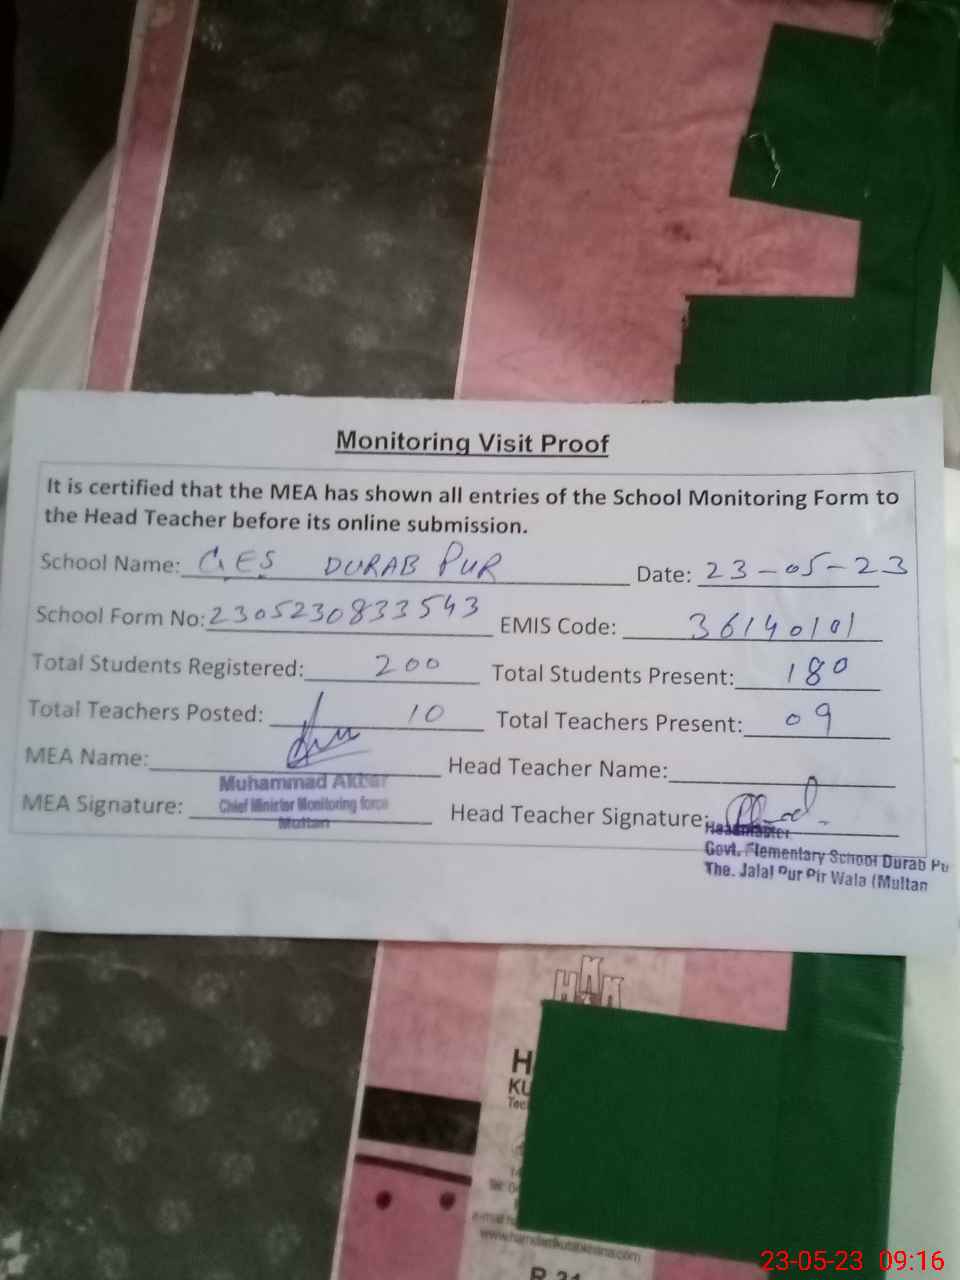 Monitoring Visit Proof
It is certified that the MEA has shown all entries of the School Monitoring Form to
the Head Teacher before its online submission.
School Name: GES DURAB PUR Date: 23-05-23
School Form No: 2305230833543 EMIS Code: 36140101
Total Students Registered: 200 Total Students Present: 180
Total Teachers Posted: 10 Total Teachers Present: 09
MEA Name: Head Teacher Name:
Muhammad Akbar
MEA Signature: Chief Minister Monitoring force Head Teacher Signature:
Multan
Headmaster
Govt. Elementary School Durab Pu
The. Jalal Pur Pir Wala (Multan
HKK
H
KU
Tec
www.hamdardkutabkhana.com
23-05-23 09:16